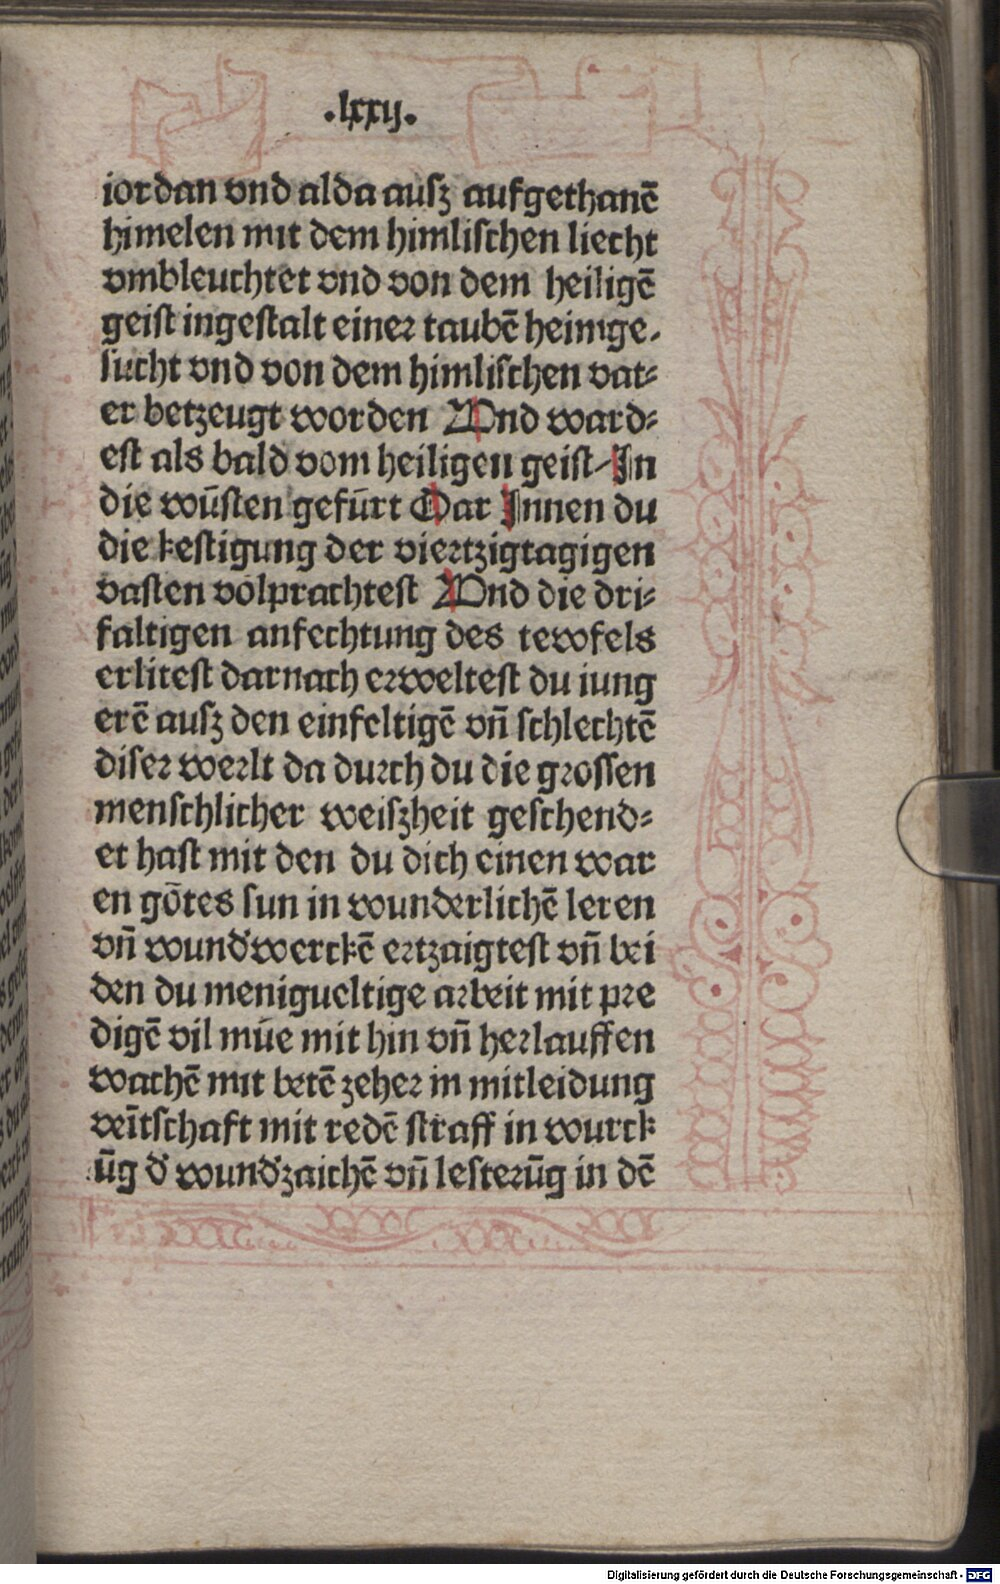 .lxxij.
iordan vnd alda ausz aufgethanē
himelen mit dem himlischen liecht
vmbleuchtet vnd von dem heiligē
geist ingestalt einer taubē heimge-
sucht vnd von dem himlischen vat-
er betzeugt worden Vnd ward-
est als bald vom heiligen geist / In
die wūsten gefūrt Dar Innen du
die kestigung der viertzigtagigen
vasten volprachtest Vnd die dri-
faltigen anfechtung des tewfels
erlitest darnach erweltest du iung
erē ausz den einfeltigē vn̄ schlechtē
diser werlt da durch du die grossen
menschlicher weiszheit geschend-
et hast mit den du dich einen war
en gōtes sun in wunderlichē leren
vn̄ wund'werckē ertzaigtest vn̄ bei
den du menigueltige arbeit mit pre
digē vil mūe mit hin vn̄ herlauffen
wachē mit betē zeher in mitleidung
veītschaft mit redē straff in wurck
ūg d' wund'zaichē vn̄ lesterūg in dē
Digitalisierung gefördert durch die Deutsche Forschungsgemeinschaft - DFG